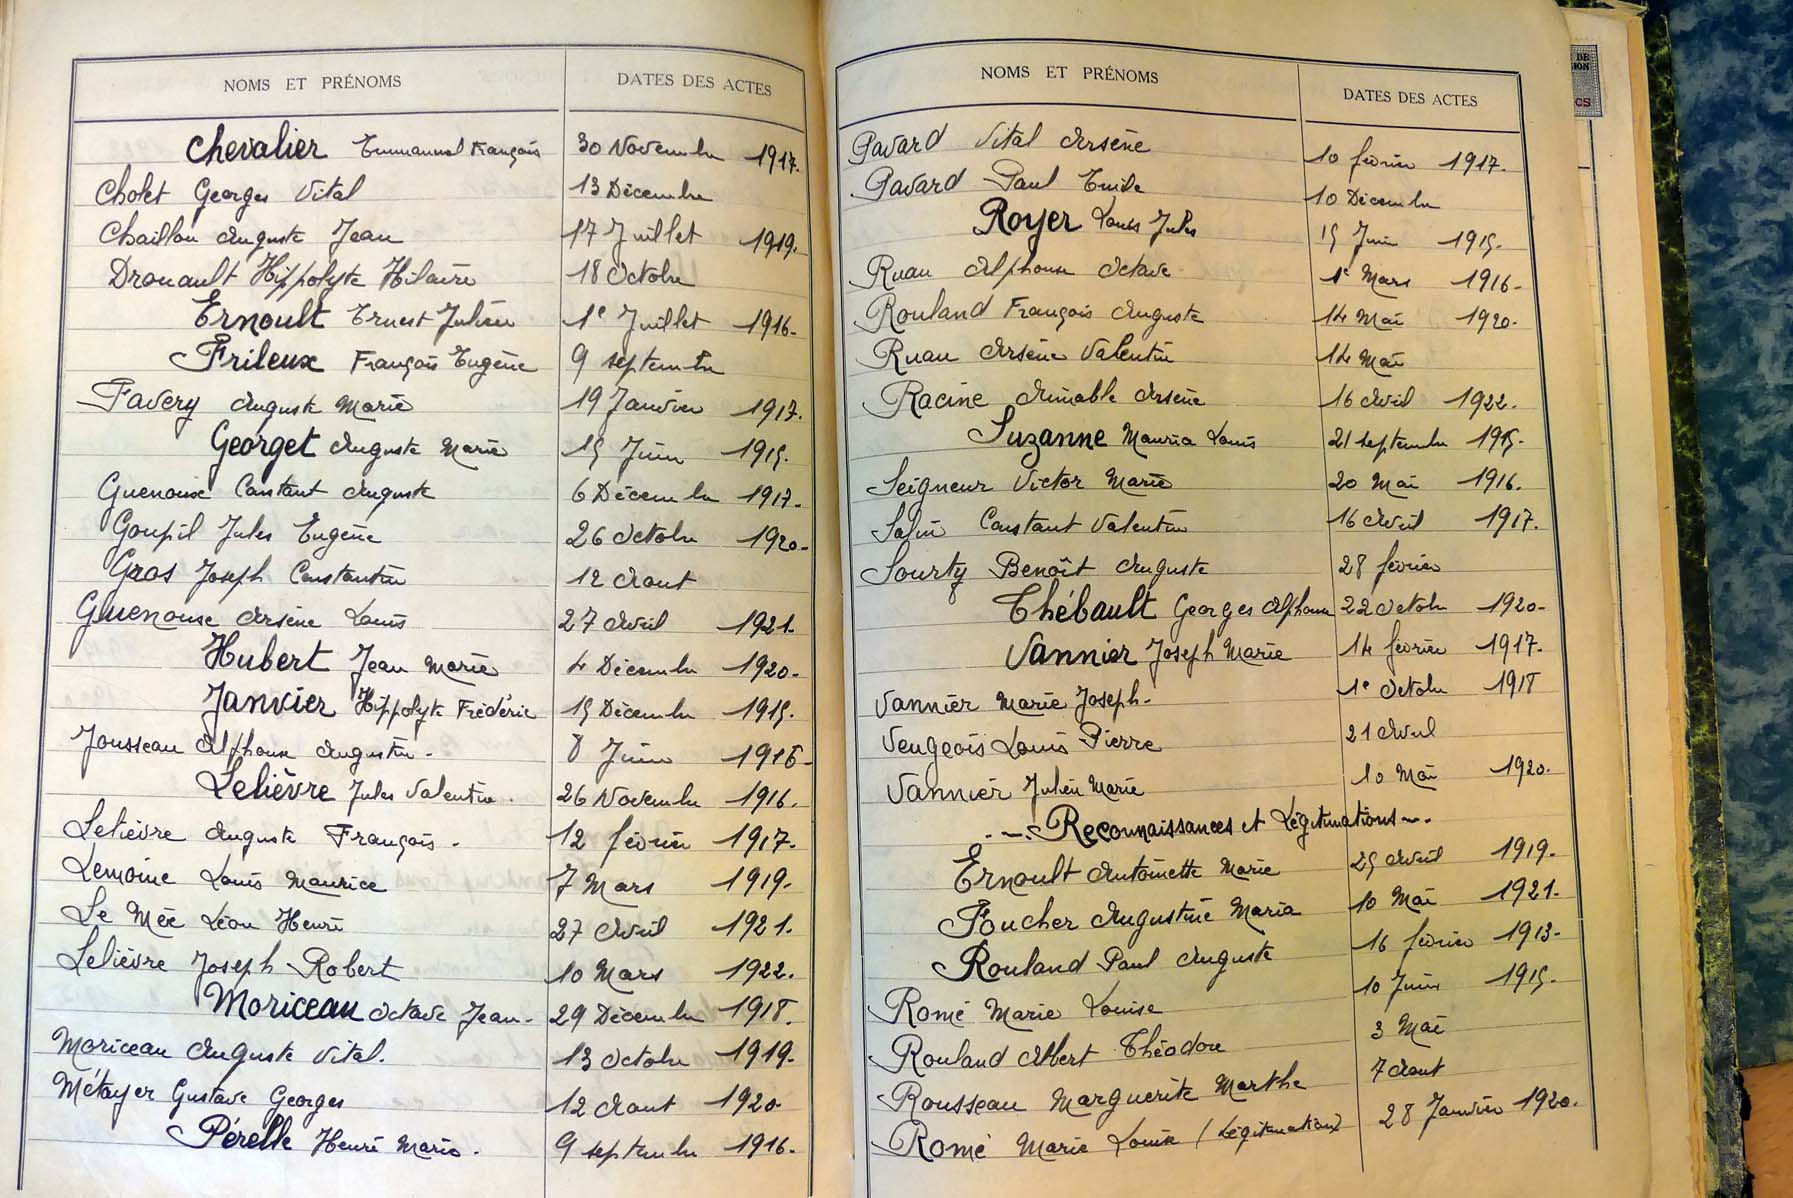 NOMS ET PRÉNOMS DATES DES ACTES
Chevalier Emmanuel François 30 Novembre 1917.
Cholet Georges Vital 13 Décembre
Chaillou Auguste Jean 17 Juillet 1919.
Drouault Hippolyte Hilaire 18 Octobre
Ernoult Ernest Julien 1e Juillet 1916.
Frileux François Eugène 9 septembre
Favery Auguste Marie 19 Janvier 1917.
Georget Auguste Marie 15 Juin 1915.
Guenouse Constant Auguste 6 Décembre 1917.
Goupil Jules Eugène 26 Octobre 1920.
Gros Joseph Constantin 12 Aout
Guenouse Arsène Louis 27 Avril 1921.
Hubert Jean Marie 4 Décembre 1920.
Janvier Hippolyte Frédéric 15 Décembre 1915.
Jousseau Alphonse Augustin. 8 Juin 1916.
Lelièvre Jules Valentin. 26 Novembre 1916.
Lelièvre Auguste François. 12 février 1917.
Lemoine Louis Maurice 7 Mars 1919.
Le Mée Léon Henri 27 Avril 1921.
Lelièvre Joseph Robert 10 Mars 1922.
Moriceau Octave Jean. 29 Décembre 1918.
Moriceau Auguste Vital. 13 Octobre 1919.
Métayer Gustave Georges 12 Aout 1920.
Pérelle Henri Marie. 9 septembre 1916.
NOMS ET PRÉNOMS DATES DES ACTES
Pavard Vital Arsène 10 février 1917.
Pavard Paul Emile 10 Décembre
Royer Louis Jules 15 Juin 1915.
Ruau Alphonse Octave 1e Mars 1916.
Rouland François Auguste 14 Mai 1920.
Ruau Arsène Valentin 14 Mai
Racine Aimable Arsène 16 Avril 1922.
Suzanne Maurice Louis 21 septembre 1915.
Seigneur Victor Marie 20 Mai 1916.
Salin Constant Valentin 16 Avril 1917.
Sourty Benoît Auguste 28 février
Thébault Georges Alphonse 22 Octobre 1920.
Vannier Joseph Marie 14 février 1917.
Vannier Marie Joseph. 1e Octobre 1918
Veugeois Louis Pierre 21 Avril
Vannier Julien Marie 10 Mai 1920.
Reconnaissances et Légitimations
Ernoult Antoinette Marie 25 Avril 1919.
Foucher Augustine Maria 10 Mai 1921.
Rouland Paul Auguste 16 février 1913.
Romé Marie Louise 10 Juin 1915.
Rouland Albert Théodore 3 Mai
Rousseau Marguerite Marthe 7 Aout
Romé Marie Louise (Légitimation) 28 Janvier 1920.